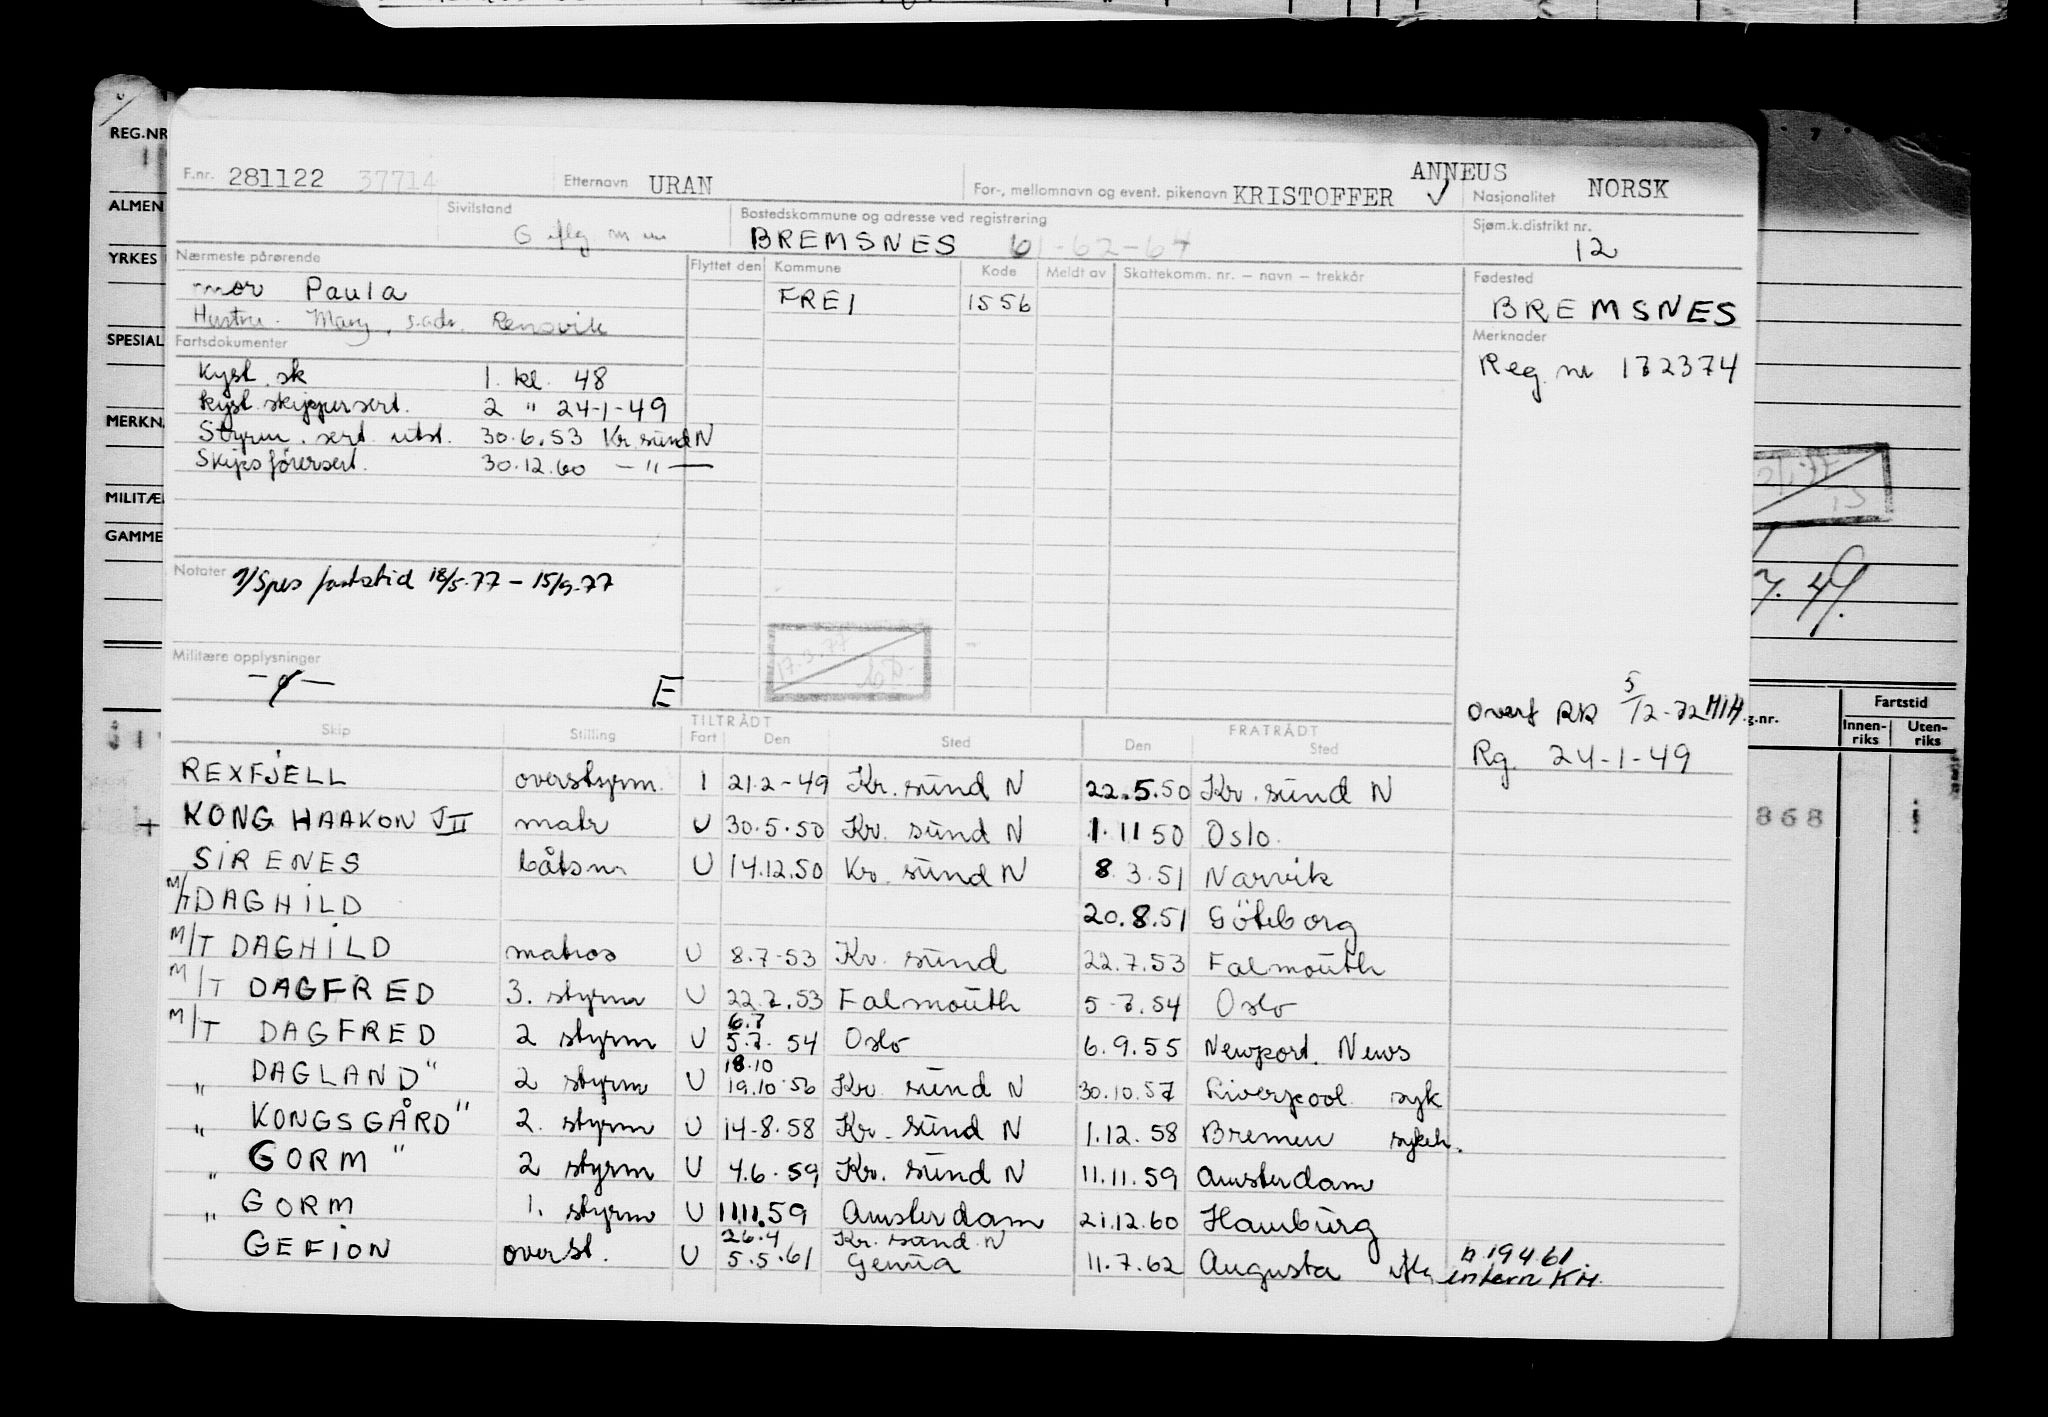 REG.NR
ALMEN
YRKES
SPESIAL
MERKN
MILITÆ
GAMME
F.nr. 281122 37714 Etternavn URAN For-, mellomnavn og event. pikenavn KRISTOFFER ANNEUS Nasjonalitet NORSK
Sivilstand G iflg Bostedskommune og adresse ved registrering BREMSNES 61-62-64 Sjøm.k.distrikt nr. 12
Nærmeste pårørende Flyttet den Kommune Kode Meldt av Skattekomm. nr. – navn – trekkår Fødested
mor Paula FREI 1556 BREMSNES
Hustru. Mary, s.adr. Rensvik Merknader
Fartsdokumenter Reg nr 172374
Kyst. sk 1. kl. 48
Kyst. skippersert. 2 " 24-1-49
Styrm. sert utst. 30.6.53 Kr.sund N
Skipsførersert. 30.12.60 — " —
Notater Spes fartstid 18/5-77 – 15/9-77
17.3.77
Militære opplysninger
E
overf RR 5/12-72 MIH
Rg. 24-1-49
g.nr. Fartstid
Innen-riks Uten-riks
868
7. 49.
TILTRÅDT FRATRÅDT
Skip Stilling Fart Den Sted Den Sted
REXFJELL overstyrm. I 21.2-49 Kr. sund N 22.5.50 Kr. sund N
KONG HAAKON VII matr U 30.5.50 Kr. sund N 1.11 50 Oslo.
SIRENES båtsm U 14.12.50 Kr. sund N 8.3.51 Narvik
M/T DAGHILD 20.8.51 Göteborg
M/T DAGHILD matros U 8.7-53 Kr. sund 22.7.53 Falmouth
M/T DAGFRED 3. styrm U 22.7.53 Falmouth 5-7.54 Oslo
6.7
M/T DAGFRED 2 styrm U 5.7. 54 Oslo 6.9.55 Newport. News
18.10
" DAGLAND" 2 styrm U 19.10.56 Kr. sund N 30.10.57 Liverpool syk
" KONGSGÅRD" 2. styrm U 14-8.58 Kr. sund N 1.12.58 Bremen sykeh.
" GORM" 2 styrm U 4.6.59 Kr. sund N 11.11.59 Amsterdam
" GORM 1. styrm U 11.11.59 Amsterdam 21.12.60 Hamburg
26.4 Kr. sund N
GEFION overst. U 5.5.61 Genua 11.7.62 Augusta iflg intern KH.